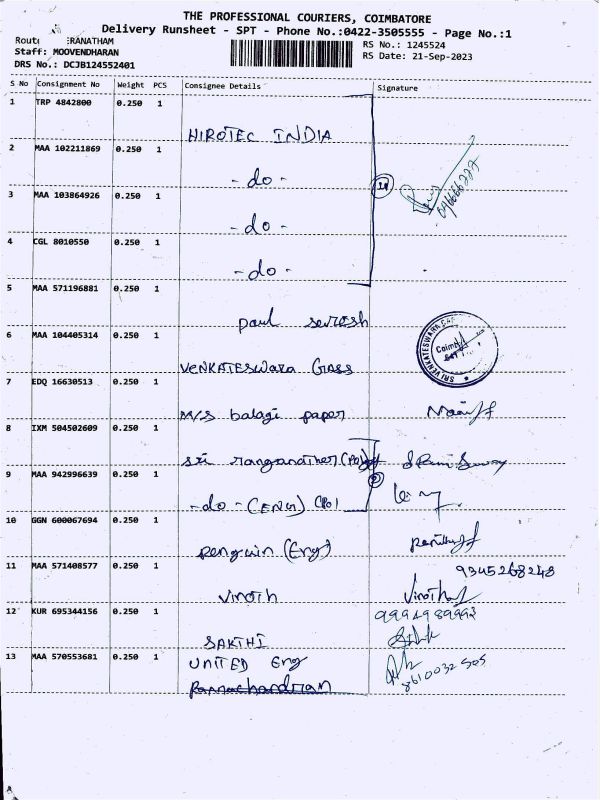 THE PROFESSIONAL COURIERS, COIMBATORE
Delivery Runsheet - SPT - Phone No.:0422-3505555 - Page No.:1
Rout ERANATHAM
Staff: MOOVENDHARAN
DRS No.: DCJB124552401
RS No.: 1245524
RS Date: 21-Sep-2023
S No Consignment No Weight PCS Consignee Details Signature
1 TRP 4842800 0.250 1
HIROTEC INDIA
2 MAA 102211869 0.250 1
- do -
3 MAA 103864926 0.250 1
- do -
4 CGL 8010550 0.250 1
- do -
5 MAA 571196881 0.250 1
paul suresh
6 MAA 104405314 0.250 1
VENKATESWARA GASS
SRI VENKATESWARA
7 EDQ 16630513 0.250 1
M/S balagi paper
8 IXM 504502609 0.250 1
sri
9 MAA 942996639 0.250 1
- do - (ENG) (PO)
10 GGN 600067694 0.250 1
penguin (Eng)
9345268248
11 MAA 571408577 0.250 1
Vinoth Vinoth
12 KUR 695344156 0.250 1
SAKTHI
13 MAA 570553681 0.250 1
UNITED Eng
Ramachandrian
8610032505